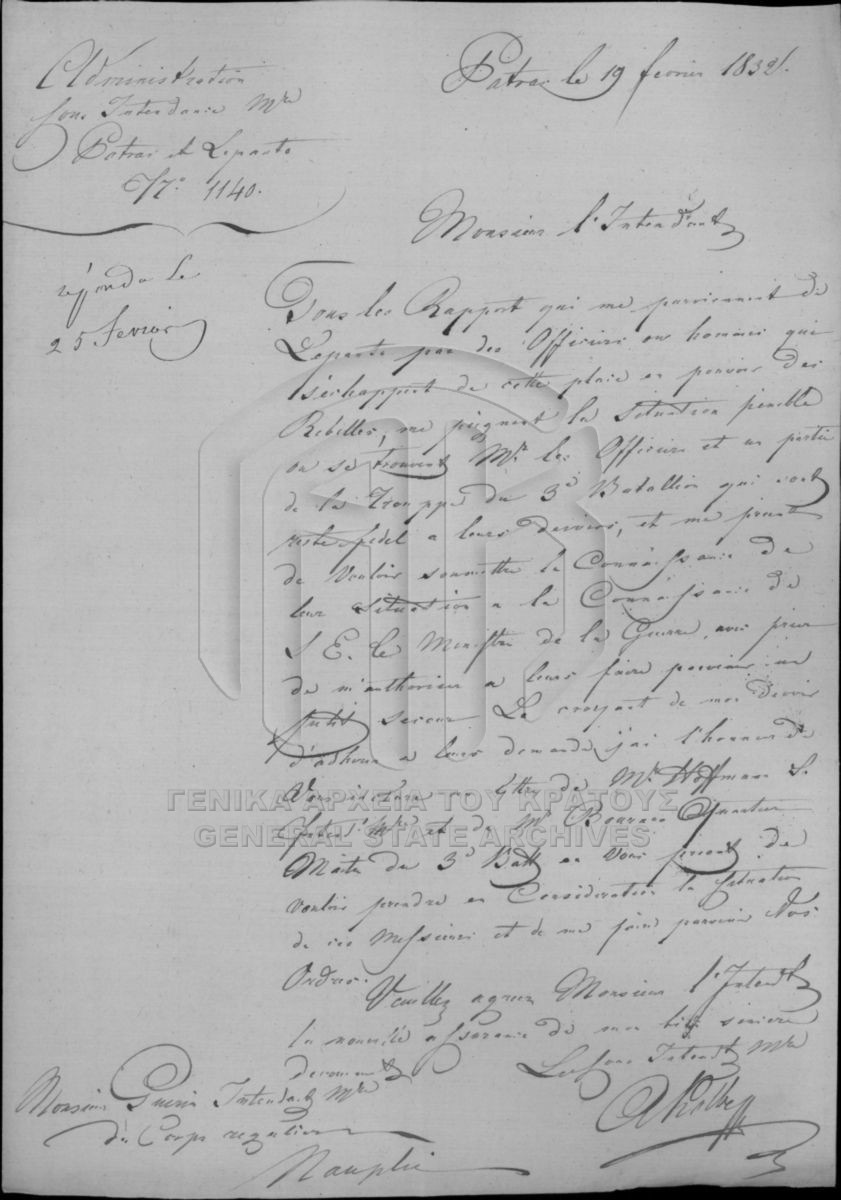 Administration
Sous Intendance Mre
Patras et Lepante
No. 1140.
Patras le 19 fevrier 1832.
Monsieur l'Intendant
répondu le
25 fevrier
Tous les Rapport qui me parviennent de
Lepante par des Officiers ou hommes qui
s'échappent de cette place en pouvoir des
Rebelles, me peignent la situation penible
ou se trouvent Mrs les Officiers et un partie
de la Trouppe du 3e Batallion qui sont
reste fidel a leurs devoirs, et me prient
de vouloir soumettre la Connaissance de
leur situation a la Connaissance de
S E. le Ministre de la Guerre, avec priere
de m'authoriser a leurs faire parvenir un
petit secour. Le croyant de mon devoir
d'adherer a leurs demande j'ai l'honneur de
Vous une lettre de Mr Hoffmann S.
Intendt Mre et de Mr Quartier
Maitre du 3e Batt en Vous priant de
vouloir prendre en Consideration la situation
de ces Messieurs et de me faire parvenir Vos
Ordres.
Veuillez agreer Monsieur l'Intendt
la nouvelle assurance de mon sincere
devoument
Le Sous Intendt Mre
Monsieur Guerin Intendant Mre
du Corps regulier
Nauplie
ΓΕΝΙΚΑ ΑΡΧΕΙΑ ΤΟΥ ΚΡΑΤΟΥΣ
GENERAL STATE ARCHIVES